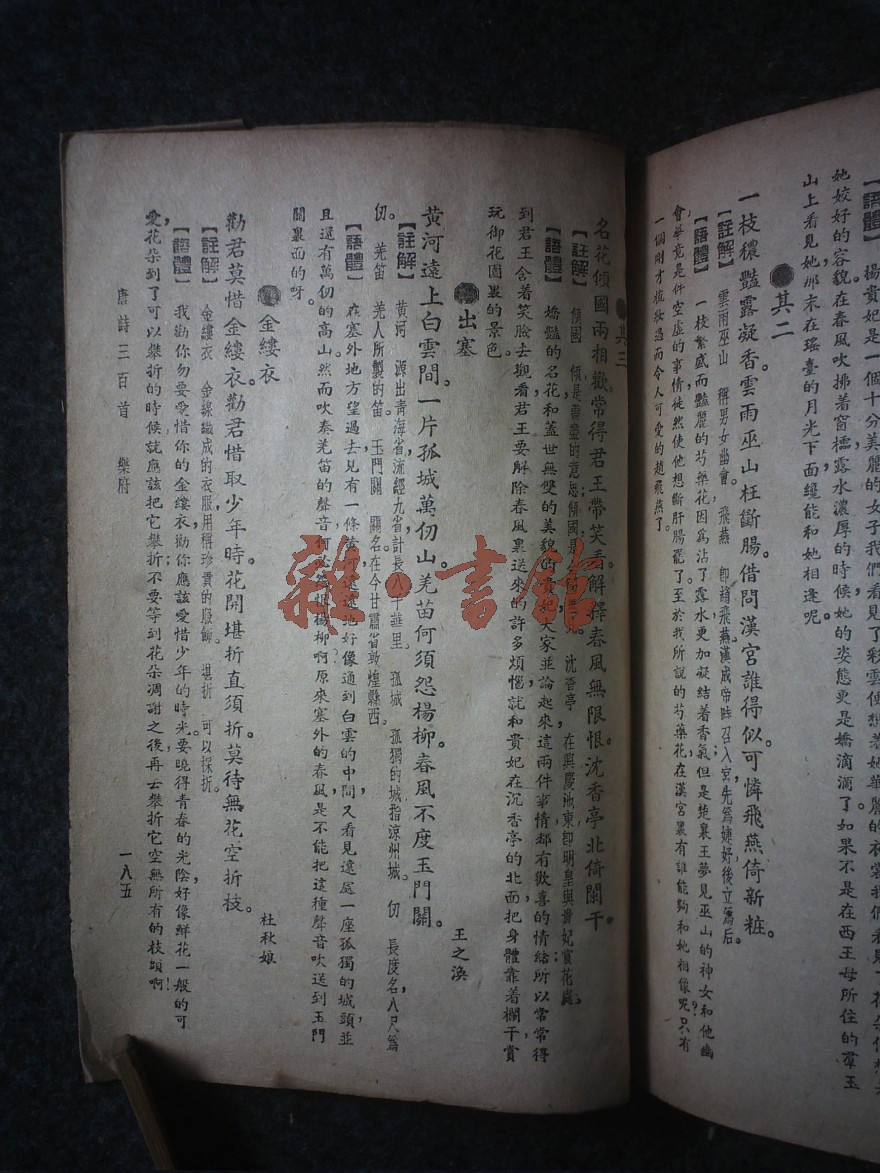 【語體】楊貴妃是一個十分美麗的女子我們看見了彩雲便想着她華麗的衣裳我們看見一
她姣好的容貌在春風吹拂着窗檽露水濃厚的時候她的姿態更是嬌滴滴了如果不是在西王母所住的羣玉
山上看見她那末在瑤臺的月光下面纔能和她相逢呢。
其二
一枝穠豔露凝香。雲雨巫山枉斷腸。借問漢宮誰得似可憐飛燕倚新粧。
【註解】雲雨巫山 稱男女幽會。飛燕 卽趙飛燕漢成帝時召入宮先爲婕妤後立爲后。
【語體】一枝繁盛而豔麗的芍藥花因爲沾了露水更加凝結着香氣但是楚襄王夢見巫山的神女和他幽
會畢竟是件空虛的事情徒然使他想斷肝腸罷了至於我所說的芍藥花在漢宮裏有誰能夠和她相像呢?只有
一個剛才梳妝過而令人可愛的趙飛燕了。
其三
名花傾國兩相歡常得君王帶笑看。解釋春風無限恨。沈香亭北倚闌干。
【註解】傾國 傾是要盡的意思傾國是 沈香亭 在興慶池東卽明皇與貴妃賞花處。
【語體】嬌豔的名花和蓋世無雙的美貌的貴妃大家並論起來這兩件事情都有歡喜的情緒所以常常得
到君王含着笑臉去觀看君王要解除春風裏送來的許多煩惱就和貴妃在沉香亭的北面把身體靠着欄干賞
玩御花園裏的景色。
出塞
王之渙
黃河遠上白雲間。一片孤城萬仞山。羌笛何須怨楊柳春風不度玉門關。
【註解】黃河 源出青海省流經九省計長八千華里。孤城 孤獨的城指涼州城。仞 長度名,八尺爲
仞。羌笛 羌人所製的笛。玉門關 關名在今甘肅省敦煌縣西。
【語體】在塞外地方望過去見有一條黃河遠遠地好像通到白雲的中間又看見遠處一座孤獨的城頭並
且還有萬仞的高山然而吹奏羌笛的聲音何必怨恨楊柳啊原來塞外的春風是不能把這種聲音吹送到玉門
關裏面的呀。
金縷衣
杜秋娘
勸君莫惜金縷衣。勸君惜取少年時。花開堪折直須折。莫待無花空折枝。
【註解】金縷衣 金線織成的衣服,用稱珍貴的服飾。堪折 可以採折。
【語體】我勸你勿要愛惜你的金縷衣勸你應該愛惜少年的時光要曉得青春的光陰好像鮮花一般的可
愛,花朵到了可以攀折的時候就應該把它攀折不要等到花朵凋謝之後再去攀折它空無所有的枝頭啊!
唐詩三百首 樂府 一八五
雜·書館